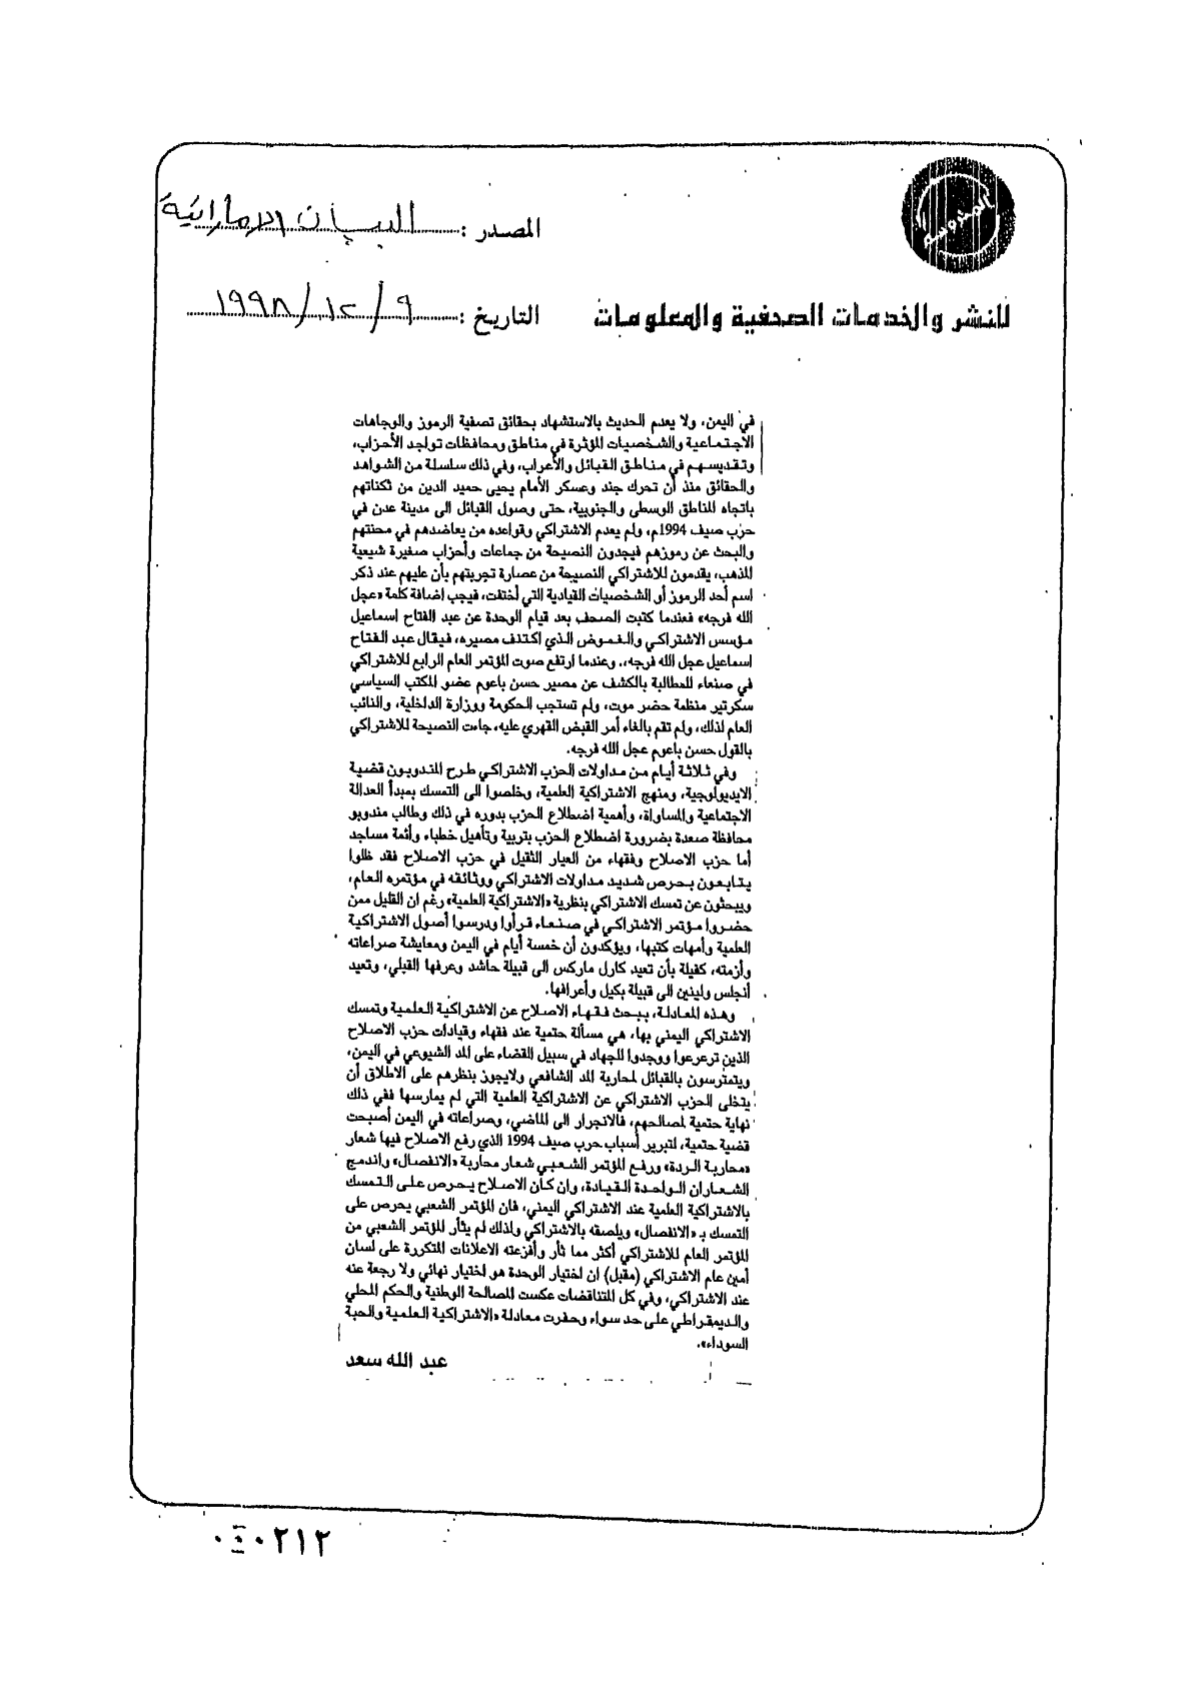 المصدر : البيان الاماراتية
للنشر والخدمات الصحفية والمعلومات
التاريخ : ٩ / ١٢ / ١٩٩٨
في اليمن، ولا يعدم الحديث بالاستشهاد بحقائق تصفية الرموز والوجاهات
الاجتماعية والشخصيات المؤثرة في مناطق ومحافظات تواجد الأحزاب،
وتقديسهم في مناطق القبائل والأعراب، وفي ذلك سلسلة من الشواهد
والحقائق منذ أن تحرك جند وعسكر الأمام يحيى حميد الدين من ثكناتهم
باتجاه المناطق الوسطى والجنوبية، حتى وصول القبائل الى مدينة عدن في
حرب صيف 1994م، ولم يعدم الاشتراكي وقواعده من يعاضدهم في محنتهم
والبحث عن رموزهم فيجدون النصيحة من جماعات وأحزاب صغيرة شيعية
المذهب، يقدمون للاشتراكي النصيحة من عصارة تجربتهم بأن عليهم عند ذكر
اسم أحد الرموز أو الشخصيات القيادية التي أختفت، فيجب اضافة كلمة «عجل
الله فرجه» فعندما كتبت الصحف بعد قيام الوحدة عن عبد الفتاح اسماعيل
مؤسس الاشتراكي والغموض الذي اكتنف مصيره، فيقال عبد الفتاح
اسماعيل عجل الله فرجه،. وعندما ارتفع صوت المؤتمر العام الرابع للاشتراكي
في صنعاء للمطالبة بالكشف عن مصير حسن باعوم عضو المكتب السياسي
سكرتير منظمة حضر موت، ولم تستجب الحكومة ووزارة الداخلية، والنائب
العام لذلك، ولم تقم بالغاء أمر القبض القهري عليه، جاءت النصيحة للاشتراكي
بالقول حسن باعوم عجل الله فرجه.
وفي ثلاثة أيام من مداولات الحزب الاشتراكي طرح المندوبون قضية
الايديولوجية، ومنهج الاشتراكية العلمية، وخلصوا الى التمسك بمبدأ العدالة
الاجتماعية والمساواة، وأهمية اضطلاع الحزب بدوره في ذلك وطالب مندوبو
محافظة صعدة بضرورة اضطلاع الحزب بتربية وتأهيل خطباء وأئمة مساجد
أما حزب الاصلاح وفقهاء من العيار الثقيل في حزب الاصلاح فقد ظلوا
يتابعون بحرص شديد مداولات الاشتراكي ووثائقه في مؤتمره العام،
ويبحثون عن تمسك الاشتراكي بنظرية «الاشتراكية العلمية» رغم ان القليل ممن
حضروا مؤتمر الاشتراكي في صنعاء قرأوا ودرسوا أصول الاشتراكية
العلمية وأمهات كتبها، ويؤكدون أن خمسة أيام في اليمن ومعايشة صراعاته
وأزمته، كفيلة بأن تعيد كارل ماركس الى قبيلة حاشد وعرفها القبلي، وتعيد
أنجلس ولينين الى قبيلة بكيل وأعرافها.
وهذه المعادلة، يبحث فقهاء الاصلاح عن الاشتراكية العلمية وتمسك
الاشتراكي اليمني بها، هي مسألة حتمية عند فقهاء وقيادات حزب الاصلاح
الذين ترعرعوا ووجدوا للجهاد في سبيل القضاء على المد الشيوعي في اليمن،
ويتمترسون بالقبائل لمحاربة المد الشافعي ولايجوز بنظرهم على الاطلاق أن
يتخلى الحزب الاشتراكي عن الاشتراكية العلمية التي لم يمارسها ففي ذلك
نهاية حتمية لمصالحهم، فالانجرار الى الماضي، وصراعاته في اليمن أصبحت
قضية حتمية، لتبرير أسباب حرب صيف 1994 الذي رفع الاصلاح فيها شعار
«محاربة الردة» ورفع المؤتمر الشعبي شعار محاربة «الانفصال» واندمج
الشعاران الواحدة القيادة، وإن كان الاصلاح يحرص على التمسك
بالاشتراكية العلمية عند الاشتراكي اليمني، فان المؤتمر الشعبي يحرص على
التمسك بـ «الانفصال» ويلصقه بالاشتراكي ولذلك لم يثأر للمؤتمر الشعبي من
المؤتمر العام للاشتراكي أكثر مما ثأر وأفزعته الاعلانات المتكررة على لسان
أمين عام الاشتراكي (مقبل) ان اختيار الوحدة هو اختيار نهائي ولا رجعة عنه
عند الاشتراكي، وفي كل المتناقضات عكست المصالحة الوطنية والحكم المحلي
والديمقراطي على حد سواء وحفرت معادلة «الاشتراكية العلمية والحبة
السوداء».
عبد الله سعد